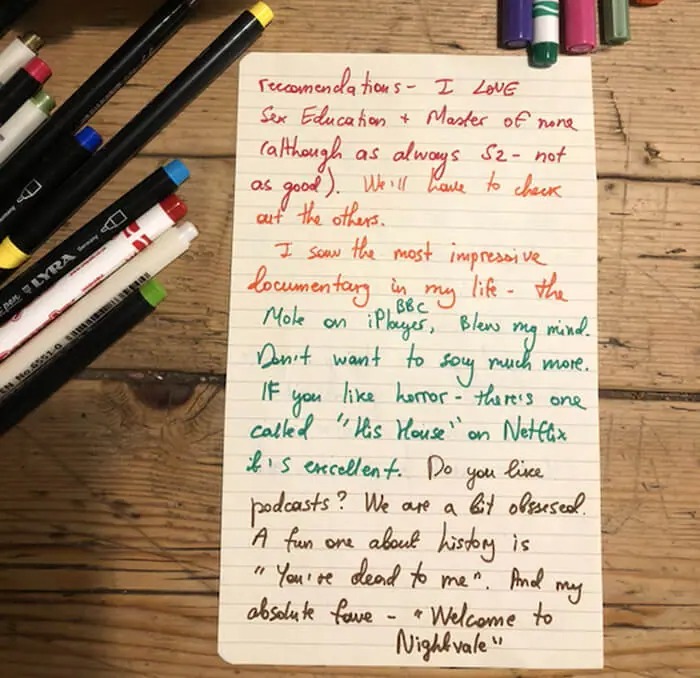 reccomendations - I LOVE
Sex Education + Master of none
(although as always S2 - not
as good). We'll have to check
out the others.
I saw the most impressive
documentary in my life - the
BBC
Mole on iPlayer, Blew my mind.
Don't want to say much more.
If you like horror - there's one
called "His House" on Netflix
it's excellent. Do you like
podcasts? We are a bit obssesed.
A fun one about history is
"You're dead to me". And my
absolute fave - "Welcome to
Nightvale"
LYRA
Germany